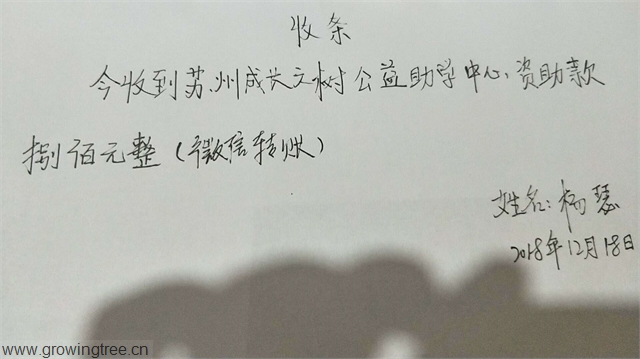 收条
今收到苏州成长之树公益助学中心资助款
捌佰元整(微信转账)
姓名:杨慧
2018年12月18日
www.growingtree.cn